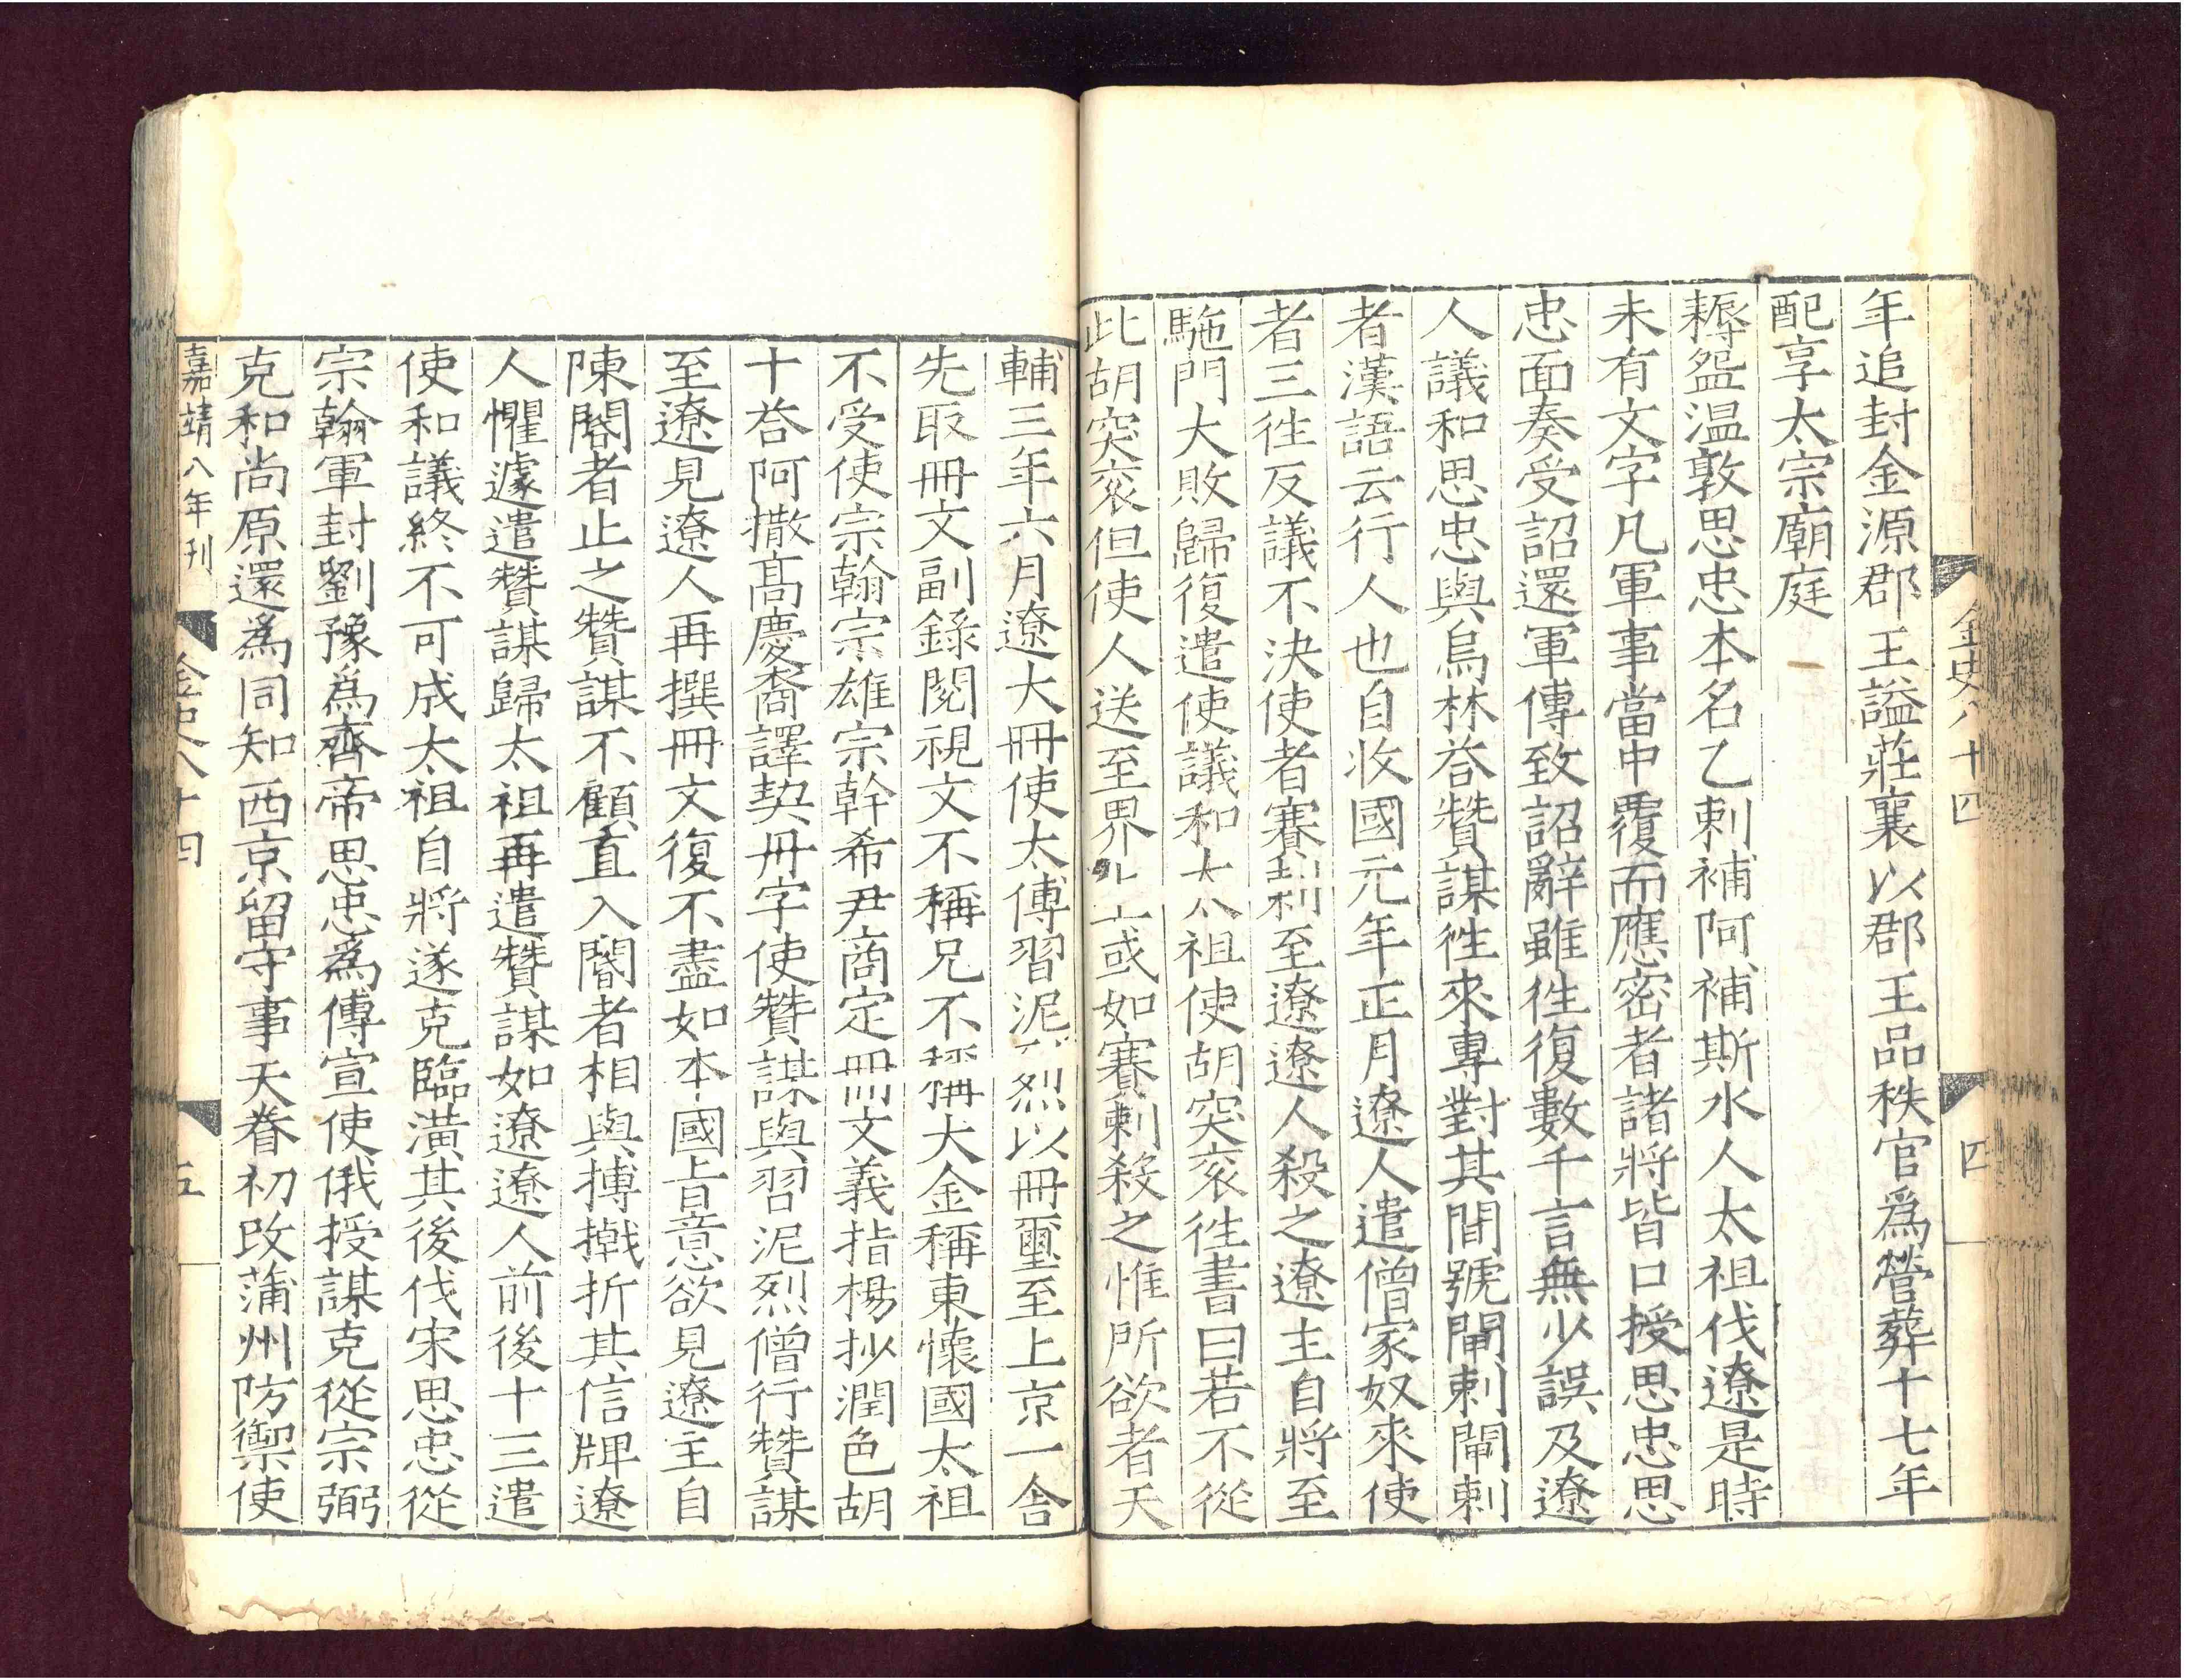 金史八十四
四
年追封金源郡王謚莊襄以郡王品秩官爲營葬十七年
配享太宗廟庭
耨盌温敦思忠本名乙剌補阿補斯水人太祖伐遼是時
未有文字凡軍事當中覆而應密者諸將皆口授思忠思
忠面奏受詔還軍傳致詔辭雖徃復數千言無少誤及遼
人議和思忠與烏林荅贊謀徃來專對其間號閘剌閘剌
者漢語云行人也自收國元年正月遼人遣僧家奴來使
者三徃反議不決使者賽剌至遼遼人殺之遼主自將至
駞門大敗歸復遣使議和太祖使胡突衮徃書曰若不從
此胡突衮但使人送至界上或如賽剌殺之惟所欲者天
輔三年六月遼大冊使太傅習泥烈以冊璽至上京一舍
先取冊文副錄閱視文不稱兄不稱大金稱東懷國太祖
不受使宗翰宗雄宗幹希尹商定冊文義指楊抄潤色胡
十荅阿撒髙慶裔譯契丹字使贊謀與習泥烈僧行贊謀
至遼見遼人再撰冊文復不盡如本國旨意欲見遼主自
陳閽者止之贊謀不顧直入閽者相與搏撠折其信牌遼
人懼遽遣贊謀歸太祖再遣贊謀如遼遼人前後十三遣
使和議終不可成太祖自將遂克臨潢其後伐宋思忠從
宗翰軍封劉豫爲齊帝思忠爲傳宣使俄授謀克從宗弼
克和尚原還爲同知西京留守事天眷初改蒲州防禦使
嘉靖八年刊
金史八十四
五